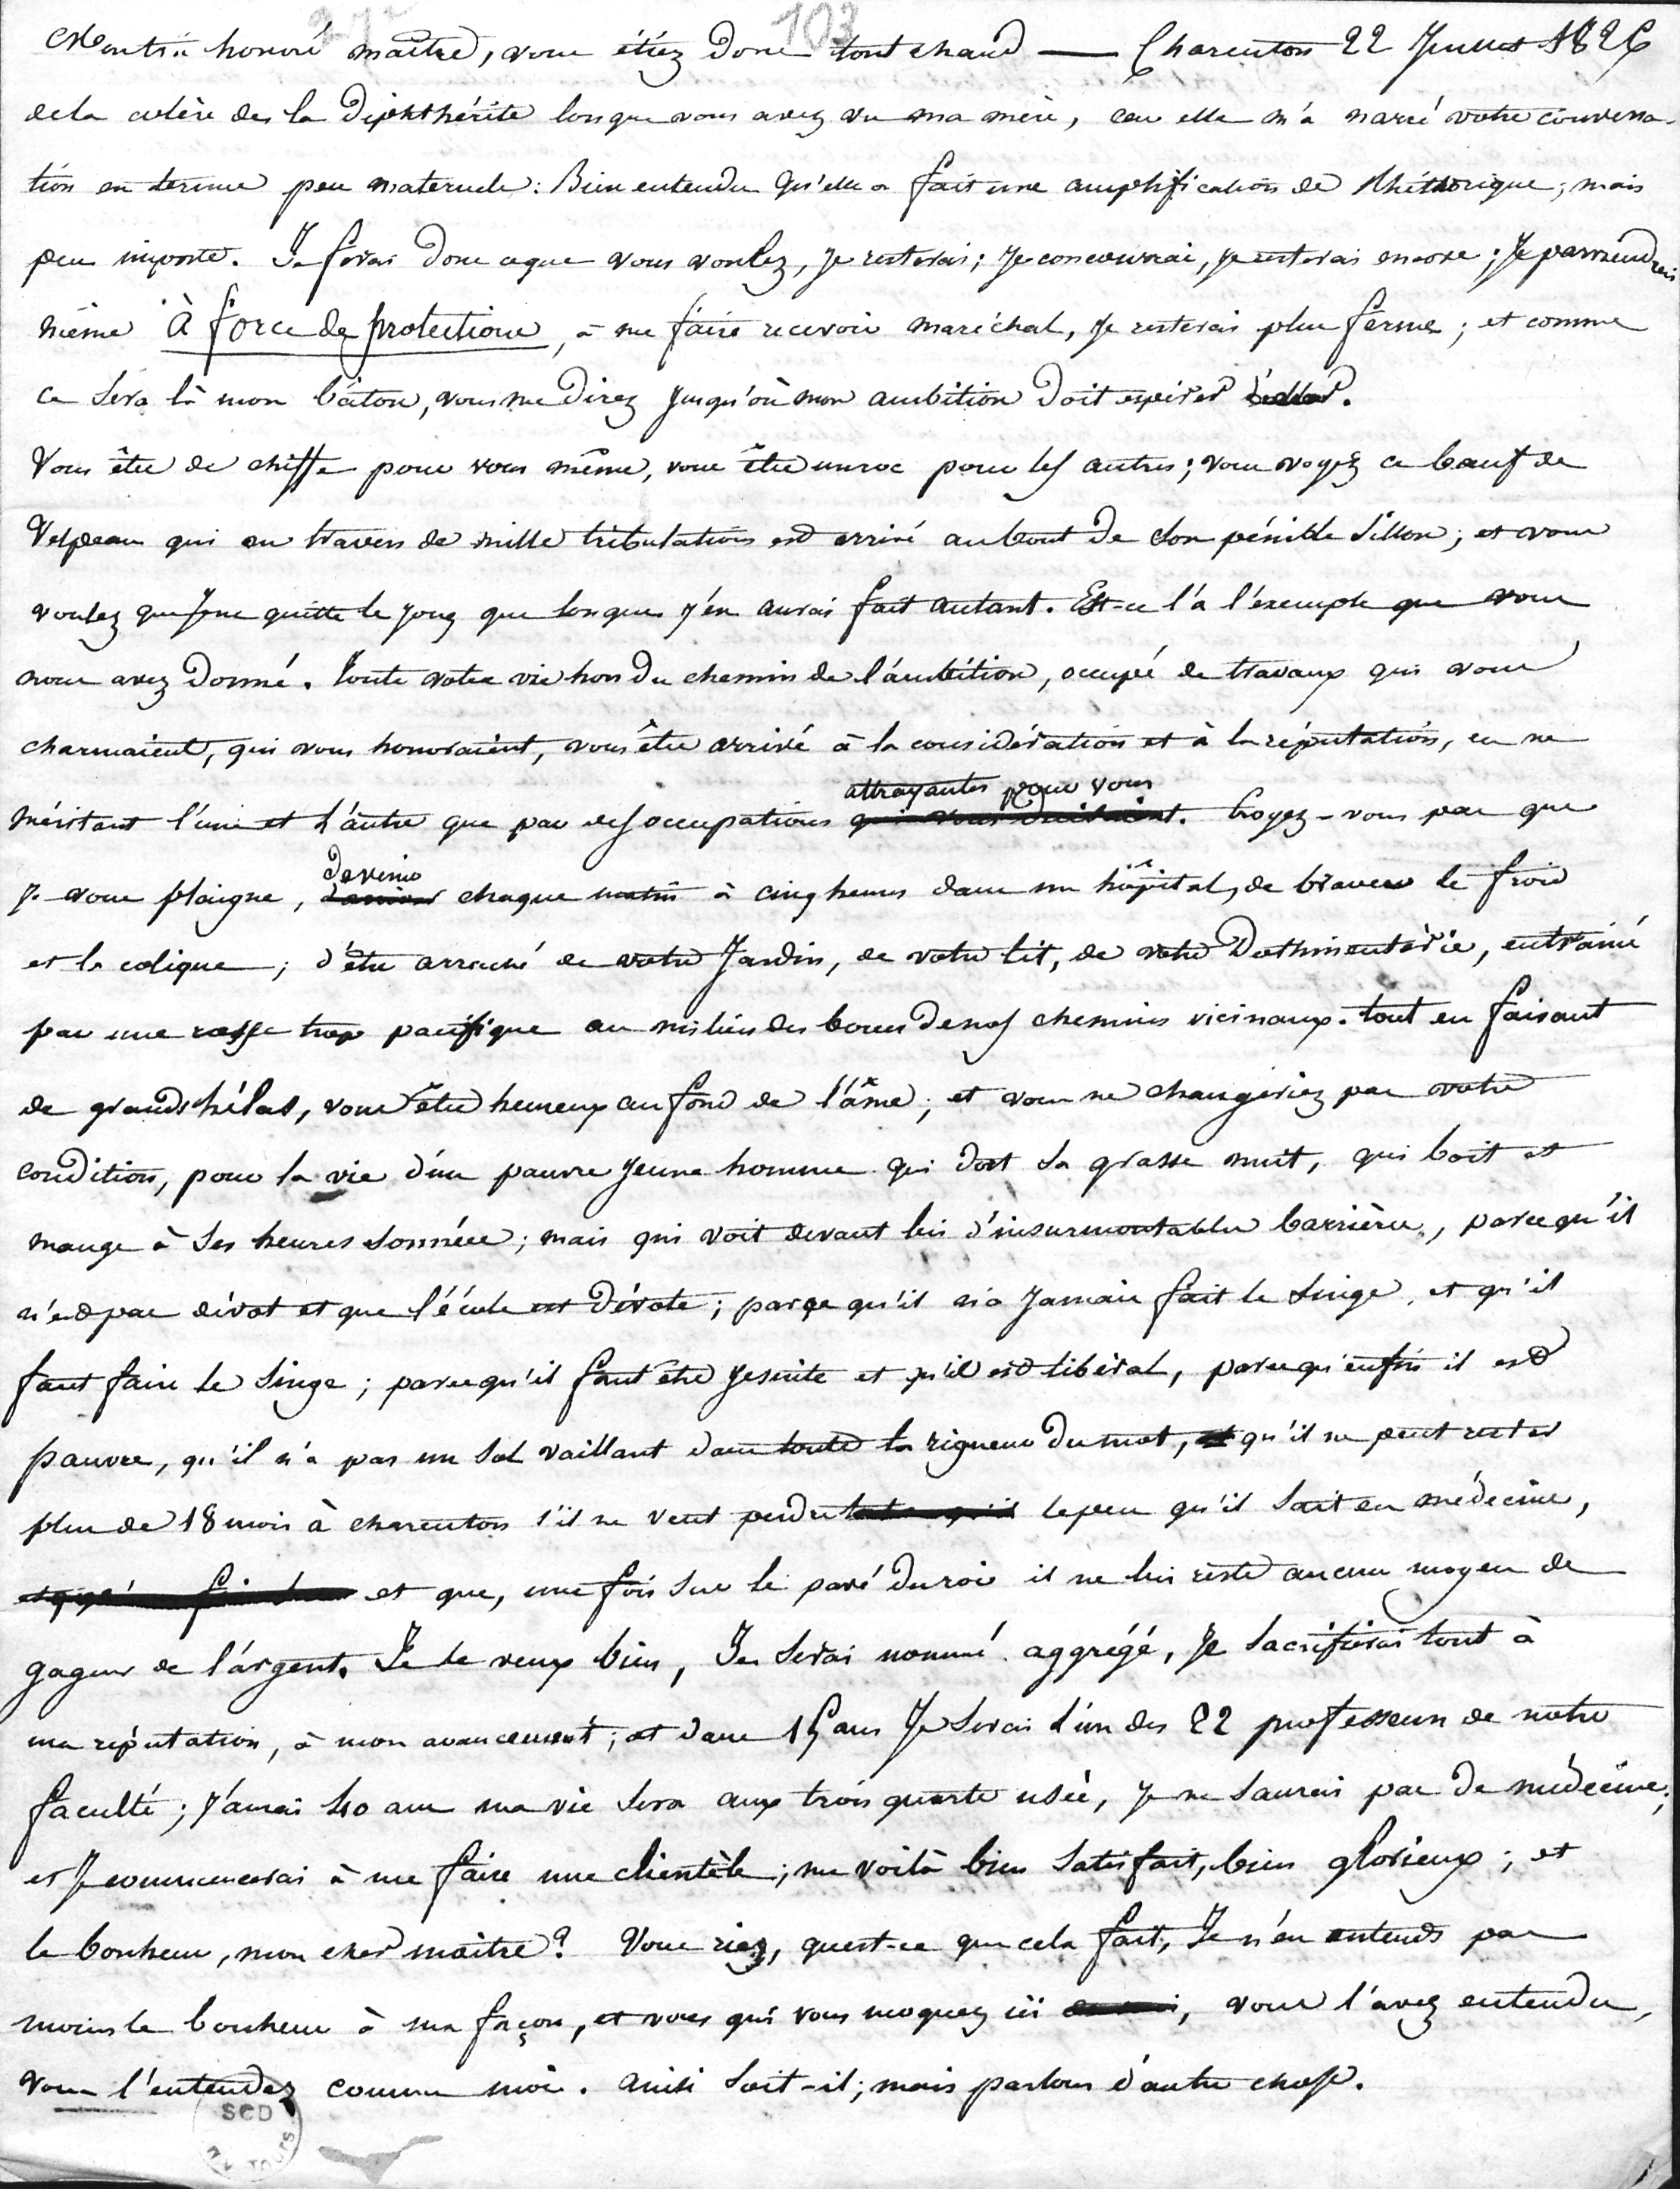 103
Mon très honoré maître, vous étiez donc tout chaud — Charenton 22 Juillet 1826
de la colère de la Diphthérite lorsque vous avez vu ma mère, car elle m'a narré votre conversa-
tion en termes peu maternels: Bien entendu qu'elle a fait une amplification de Rhéthorique; mais
peu importe. Je ferai donc ce que vous voulez, je resterai; je concourrai, je resterai encore; Je parviendrai
même À force de protections, à me faire recevoir maréchal, je resterai plus ferme; et comme
ce sera là mon bâton, vous me direz jusqu'où mon ambition doit espérer d'aller.
Vous êtes de chiffe pour vous même, vous êtes un roc pour les autres; vous voyez ce bœuf de
Velpeau qui au travers de mille tribulations est arrivé au bout de son pénible sillon; et vous
voulez que je ne quitte le joug que lorsque j'en aurai fait autant. Est-ce l'à l'exemple que vous
nous avez donné. Toute votre vie hors du chemin de l'ambition, occupé de travaux qui vous
charmaient, qui vous honoraient, vous êtes arrivé à la considération et à la réputation, en ne
attrayantes pour vous
méritant l'une et l'autre que par des occupations. Croyez-vous pas que
devenir
je vous plaigne, chaque matin à cinq heures dans un hôpital, de braver le froid
et la colique; d'être arraché de votre Jardin, de votre lit, de votre Dothinenterie, entrainé
par une rosse trop pacifique au milieu des boues de nos chemins vicinaux. tout en faisant
de grands hélas, vous êtes heureux au fond de l'âme; et vous ne changeriez pas votre
condition, pour la vie d'un pauvre jeune homme qui dort sa grasse nuit, qui boit et
mange à ses heures sonnées; mais qui voit devant lui d'insurmontables barrières, parcequ'il
n'est pas dévot et que l'école est dévote; parce qu'il n'a jamais fait le singe, et qu'il
faut faire le singe; parcequ'il faut être jésuite et qu'il est libéral, parcequ'enfin il est
pauvre, qu'il n'a pas un sol vaillant dans toute la rigueur du mot, qu'il ne peut rester
plus de 18 mois à charenton s'il ne veut perdre le peu qu'il sait en médecine,
et que, une fois sur le pavé du roi il ne lui reste aucun moyen de
gagner de l'argent. Je le veux bien, Je serai nommé aggrégé, je sacrifierai tout à
ma réputation, à mon avancement; et dans 15 ans Je serai l'un des 22 professeurs de notre
faculté; j'aurai 40 ans ma vie sera aux trois quarts usée, je ne saurai pas de médecine;
et je commencerai à me faire une clientèle; me voilà bien satisfait, bien glorieux; et
le bonheur, mon cher maître? Vous riez, quest-ce que cela fait, Je n'en entends pas
moins le bonheur à ma façon, et vous qui vous moquez ici, vous l'avez entendu,
vous l'entendez comme moi. ainsi soit-il; mais parlons d'autre chose.
SCD
TOURS